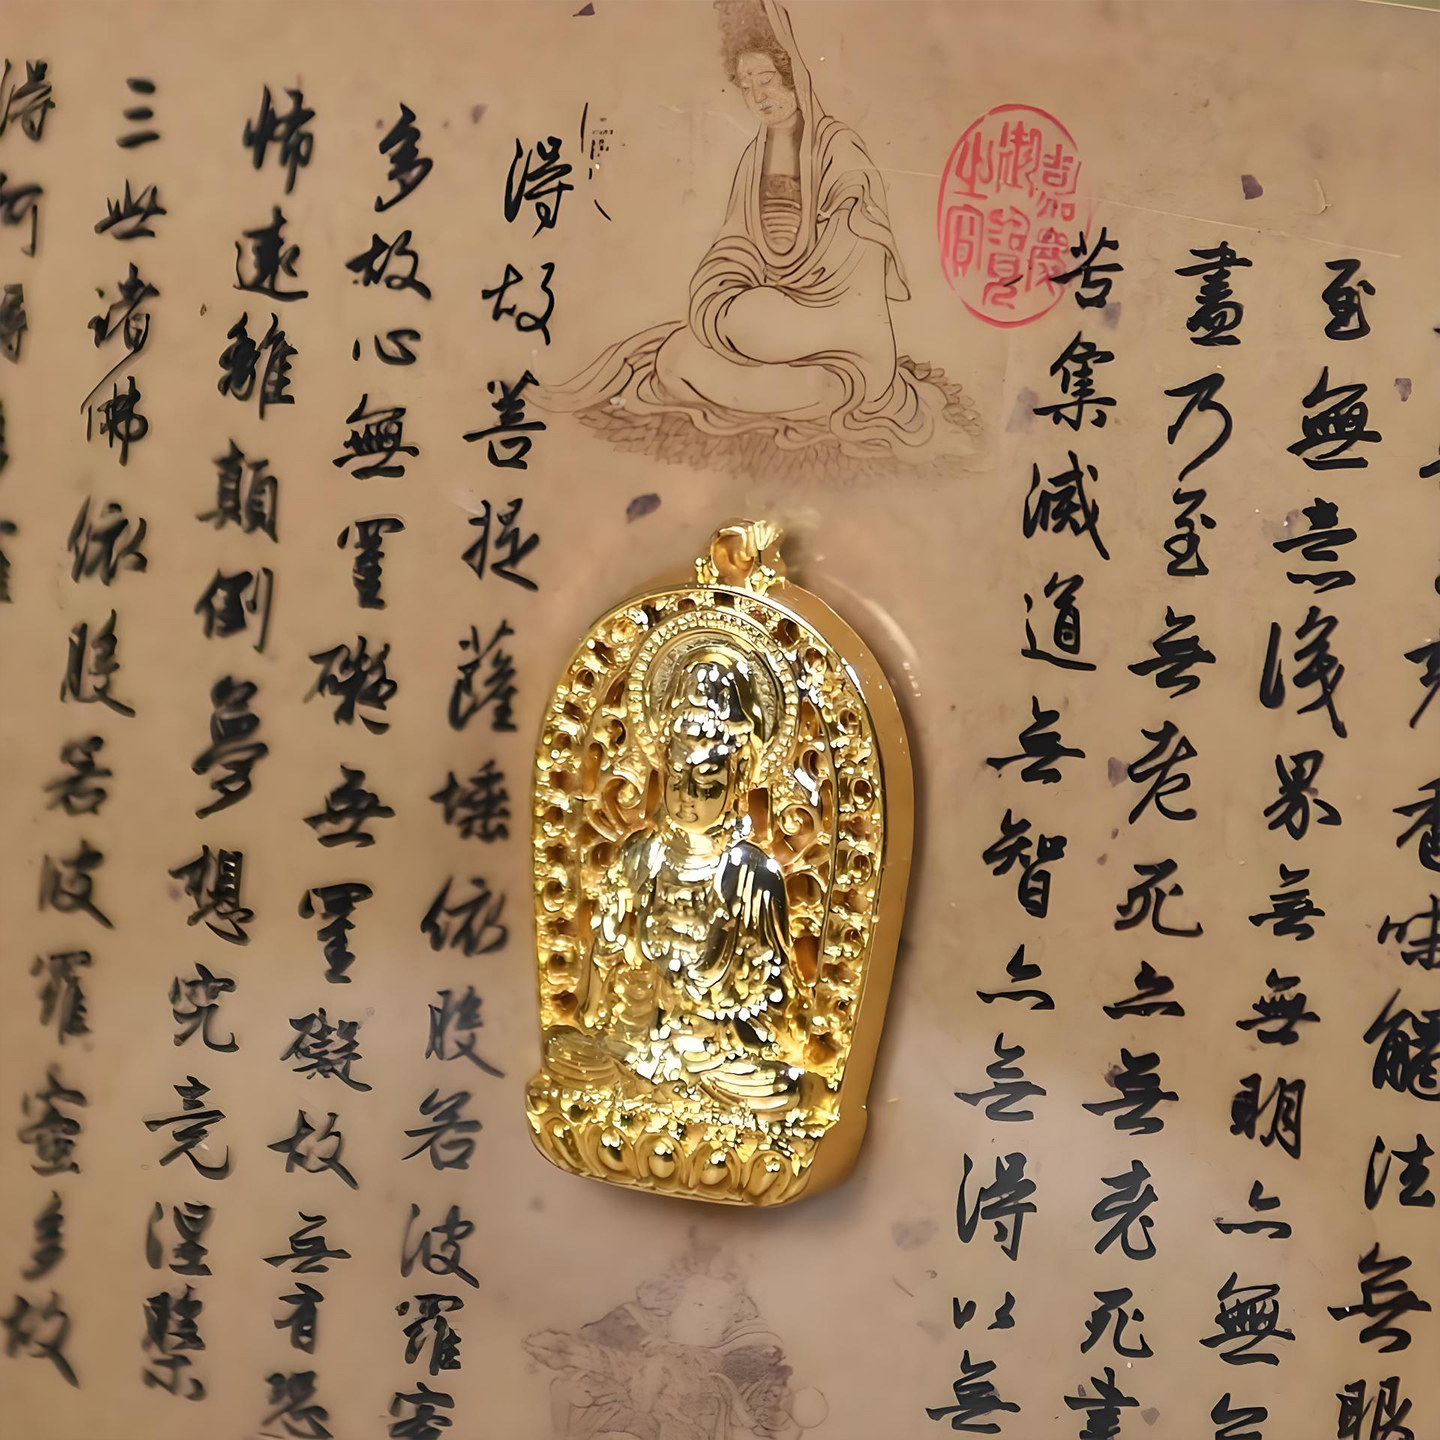 香味觸法無眼
至無意識界無無明亦無
盡乃至無老死亦無老死盡
苦集滅道無智亦無得以無
嘉慶御覽之寶
得故菩提薩埵依般若波羅蜜
多故心無罣礙無罣礙故無有恐
怖遠離顛倒夢想究竟涅槃
三世諸佛依般若波羅蜜多故
得阿